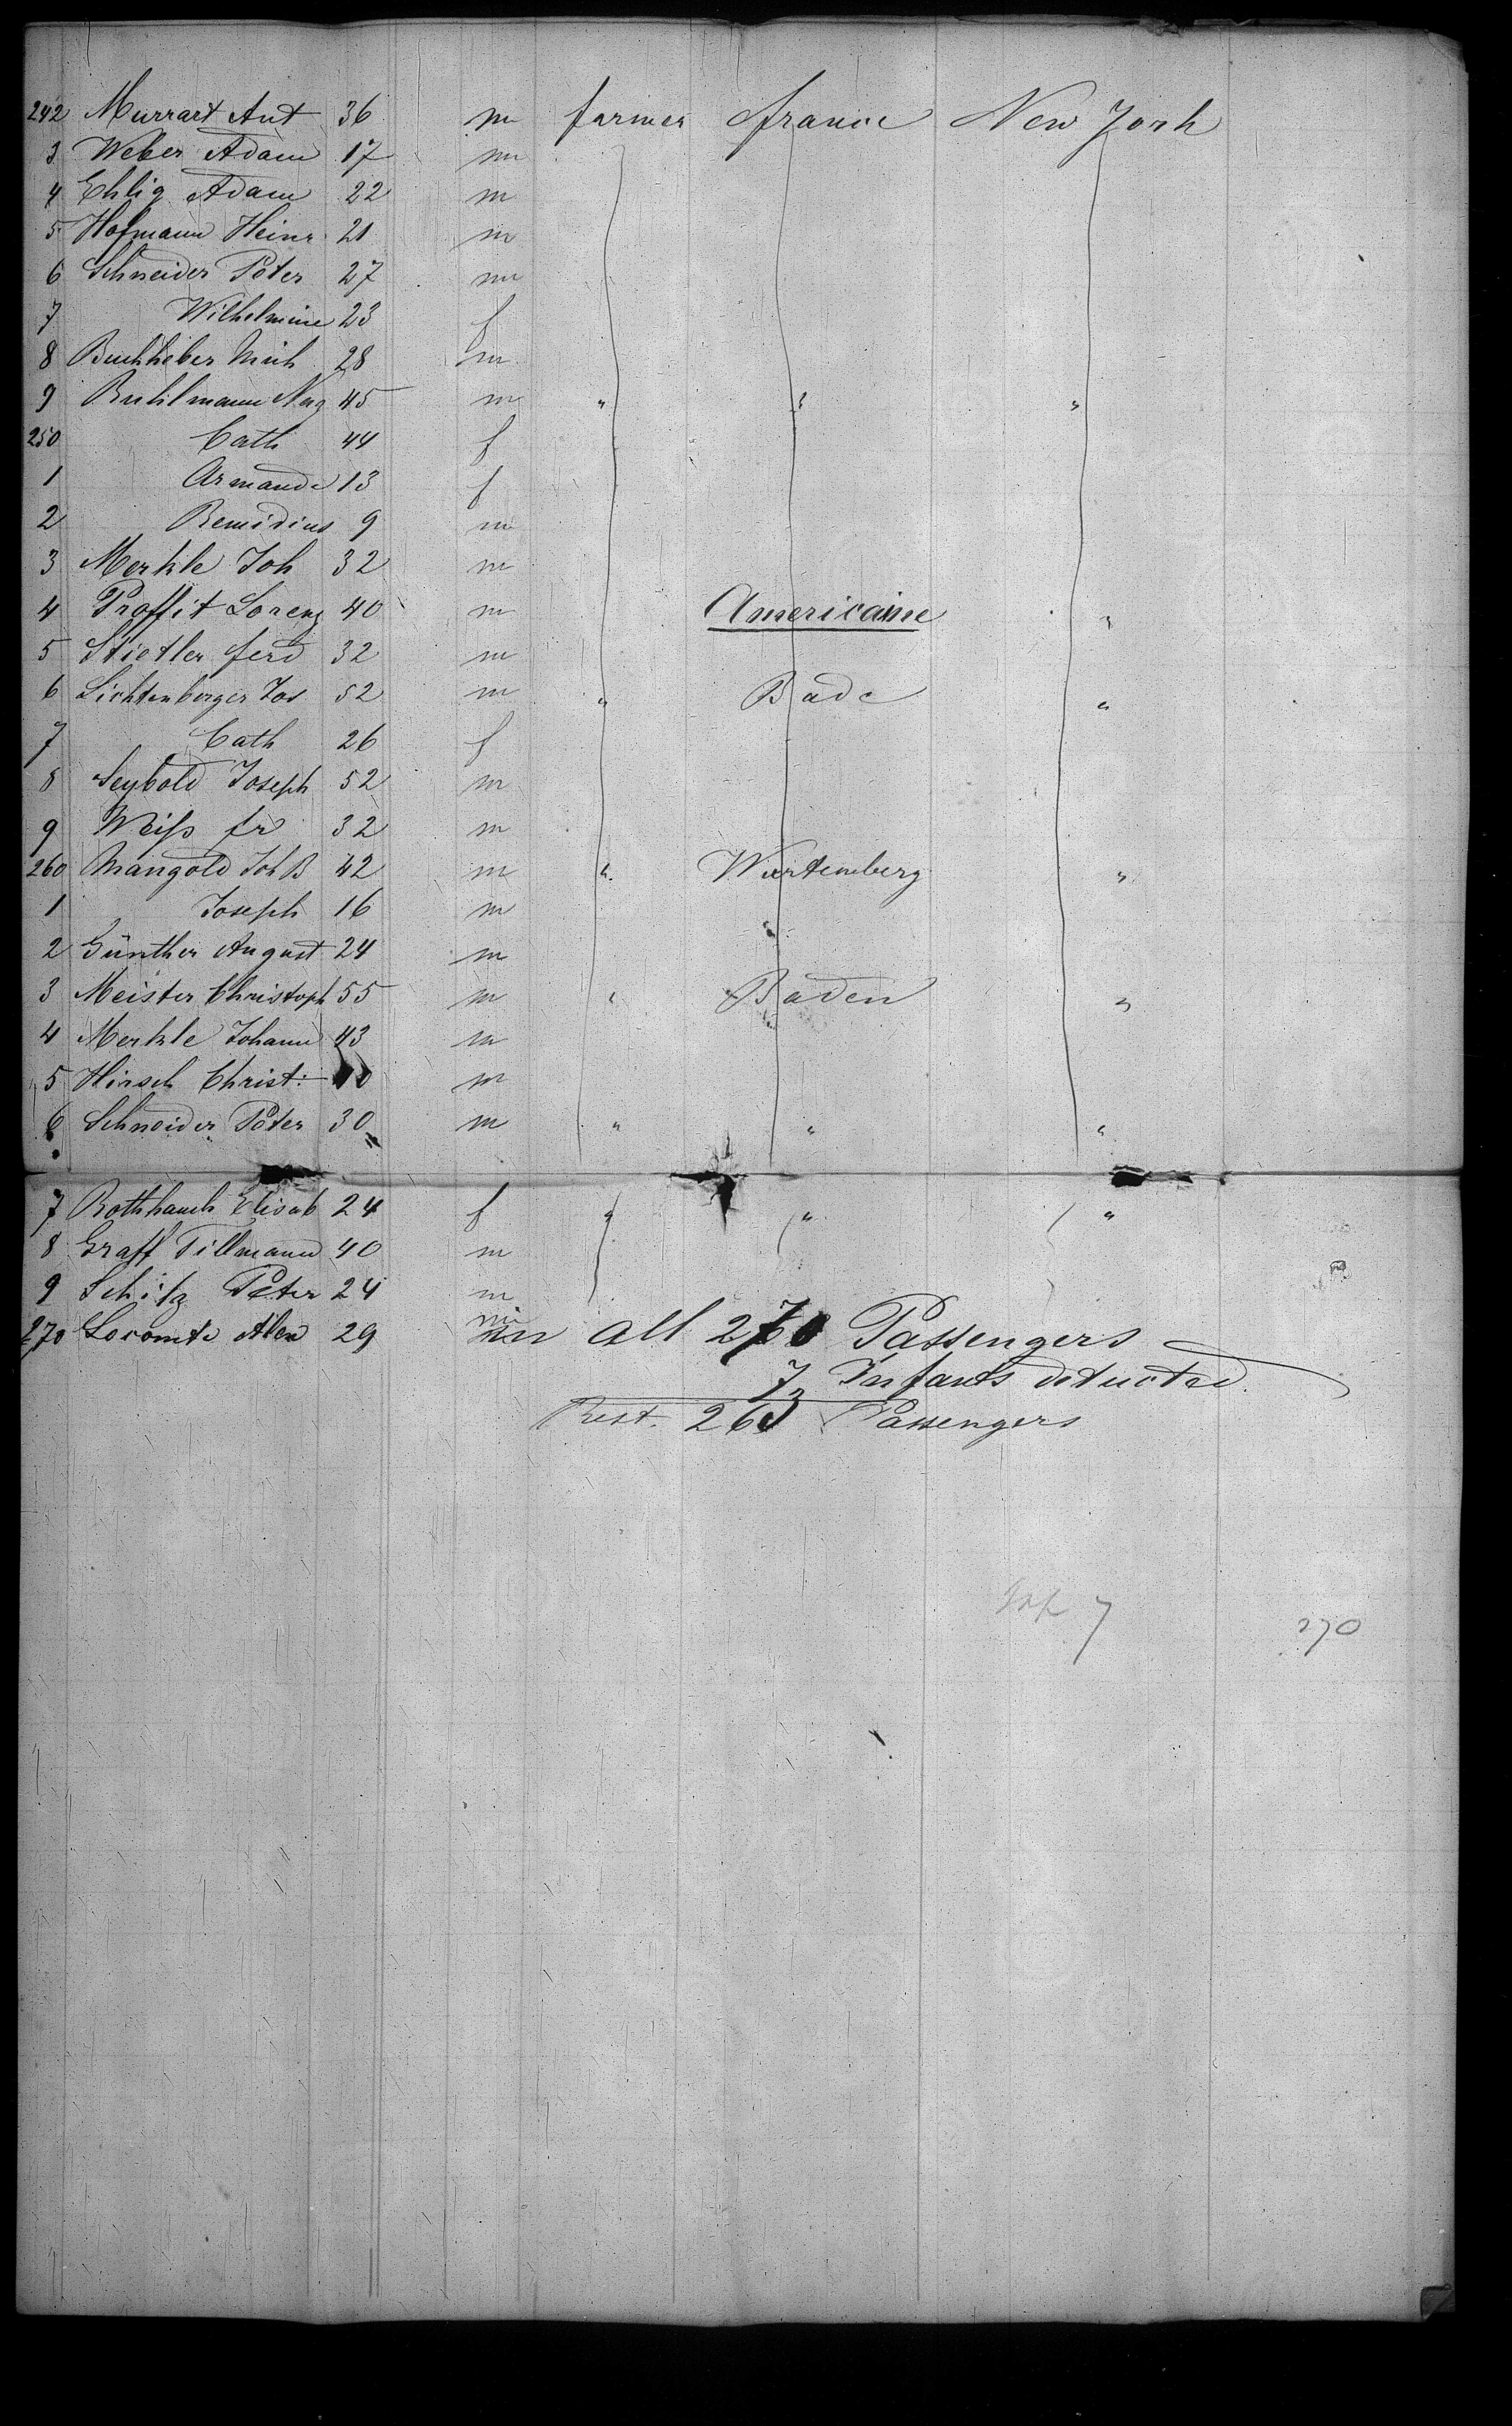 242 Murrart Ant 36 m farmer france New York
3 Weber Adam 17 m
4 Ehlig Adam 22 m
5 Hofmann Heinr 21 m
6 Schneider Peter 27 m
7 Wilhelmine 23 f
8 Buchheber Mich 28 m
9 Buhlmann 45 m " " "
250 Cath 44 f
1 Armande 13 f
2 Remidius 9 m
3 Merkle Joh 32 m
4 Proffit Lorenz 40 m Americaine "
5 Stietler ferd 32 m
6 Lichtenberger Jos 52 m " Bade "
7 Cath 26 f
8 Seybold Joseph 52 m
9 Weiß fr 32 m
260 Mangold Joh B 42 m " Wurtemberg "
1 Joseph 16 m "
2 Günther August 24 m
3 Meister Christoph 55 m " Baden "
4 Merkle Johann 43 m
5 Hirsch Christ: m
6 Schneider Peter 30 m " " "
7 Rothhauch Elisab 24 f " " "
8 Graff Tillmann 40 m
9 Schitz Peter 24 m
270 Lecomte Alex 29 m
in all 270 Passengers
7 Infants deducted.
Rest. 263 Passengers
Inf 7 270